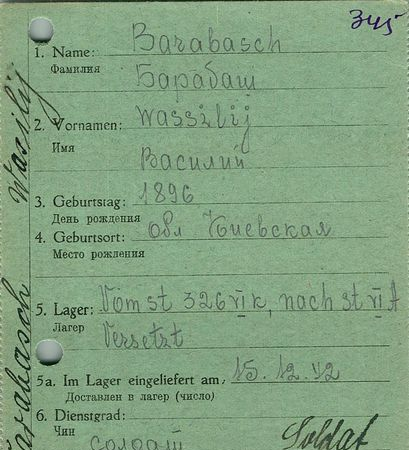 345
1. Name: Barabasch
Фамилия Барабаш
2. Vornamen: Wassilij
Имя Василий
3. Geburtstag: 1896
День рождения
4. Geburtsort: Обл Киевская
Место рождения
5. Lager: Vom st 326 VI k, nach st VI A
Лагер Versetzt
5a. Im Lager eingeliefert am, 15.12.42
Доставлен в лагер (число)
6. Dienstgrad: Soldat
Чин солдат
Barabasch Wassilij